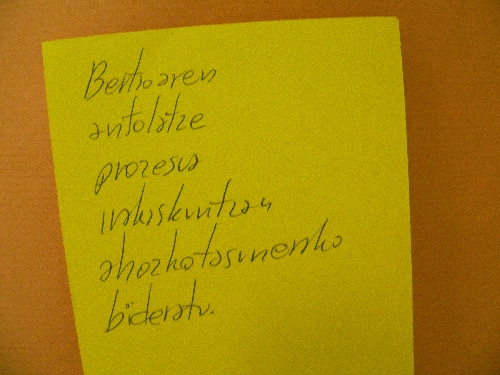 Bertsoaren
antolatze
prozesua
irakaskuntzan
ahozkotasunerako
bideratu.